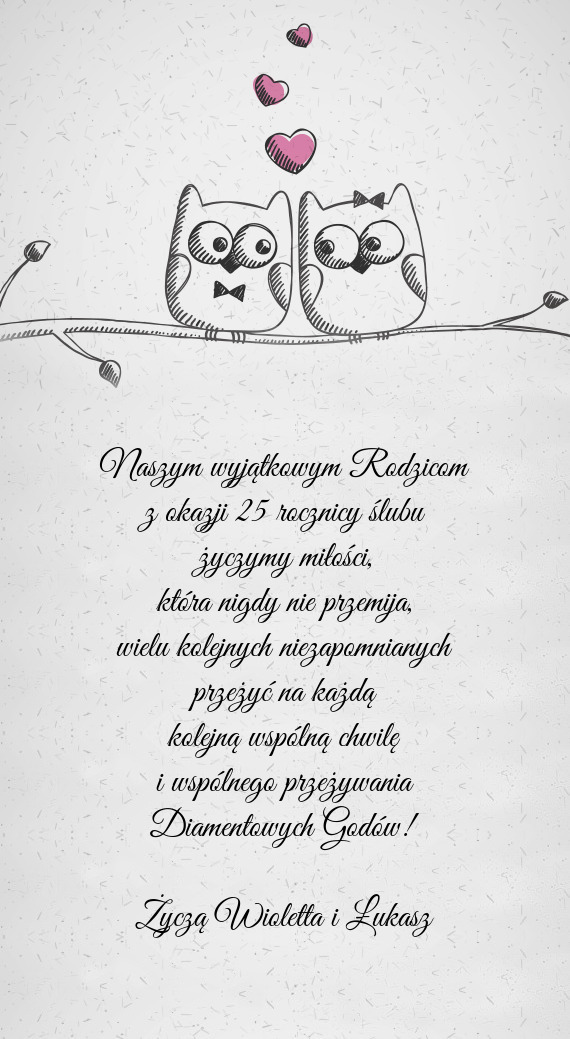 Naszym wyjątkowym Rodzicom
z okazji 25 rocznicy ślubu
życzymy miłości,
która nigdy nie przemija,
wielu kolejnych niezapomnianych
przeżyć na każdą
kolejną wspólną chwilę
i wspólnego przeżywania
Diamentowych Godów!
Życzą Wioletta i Łukasz